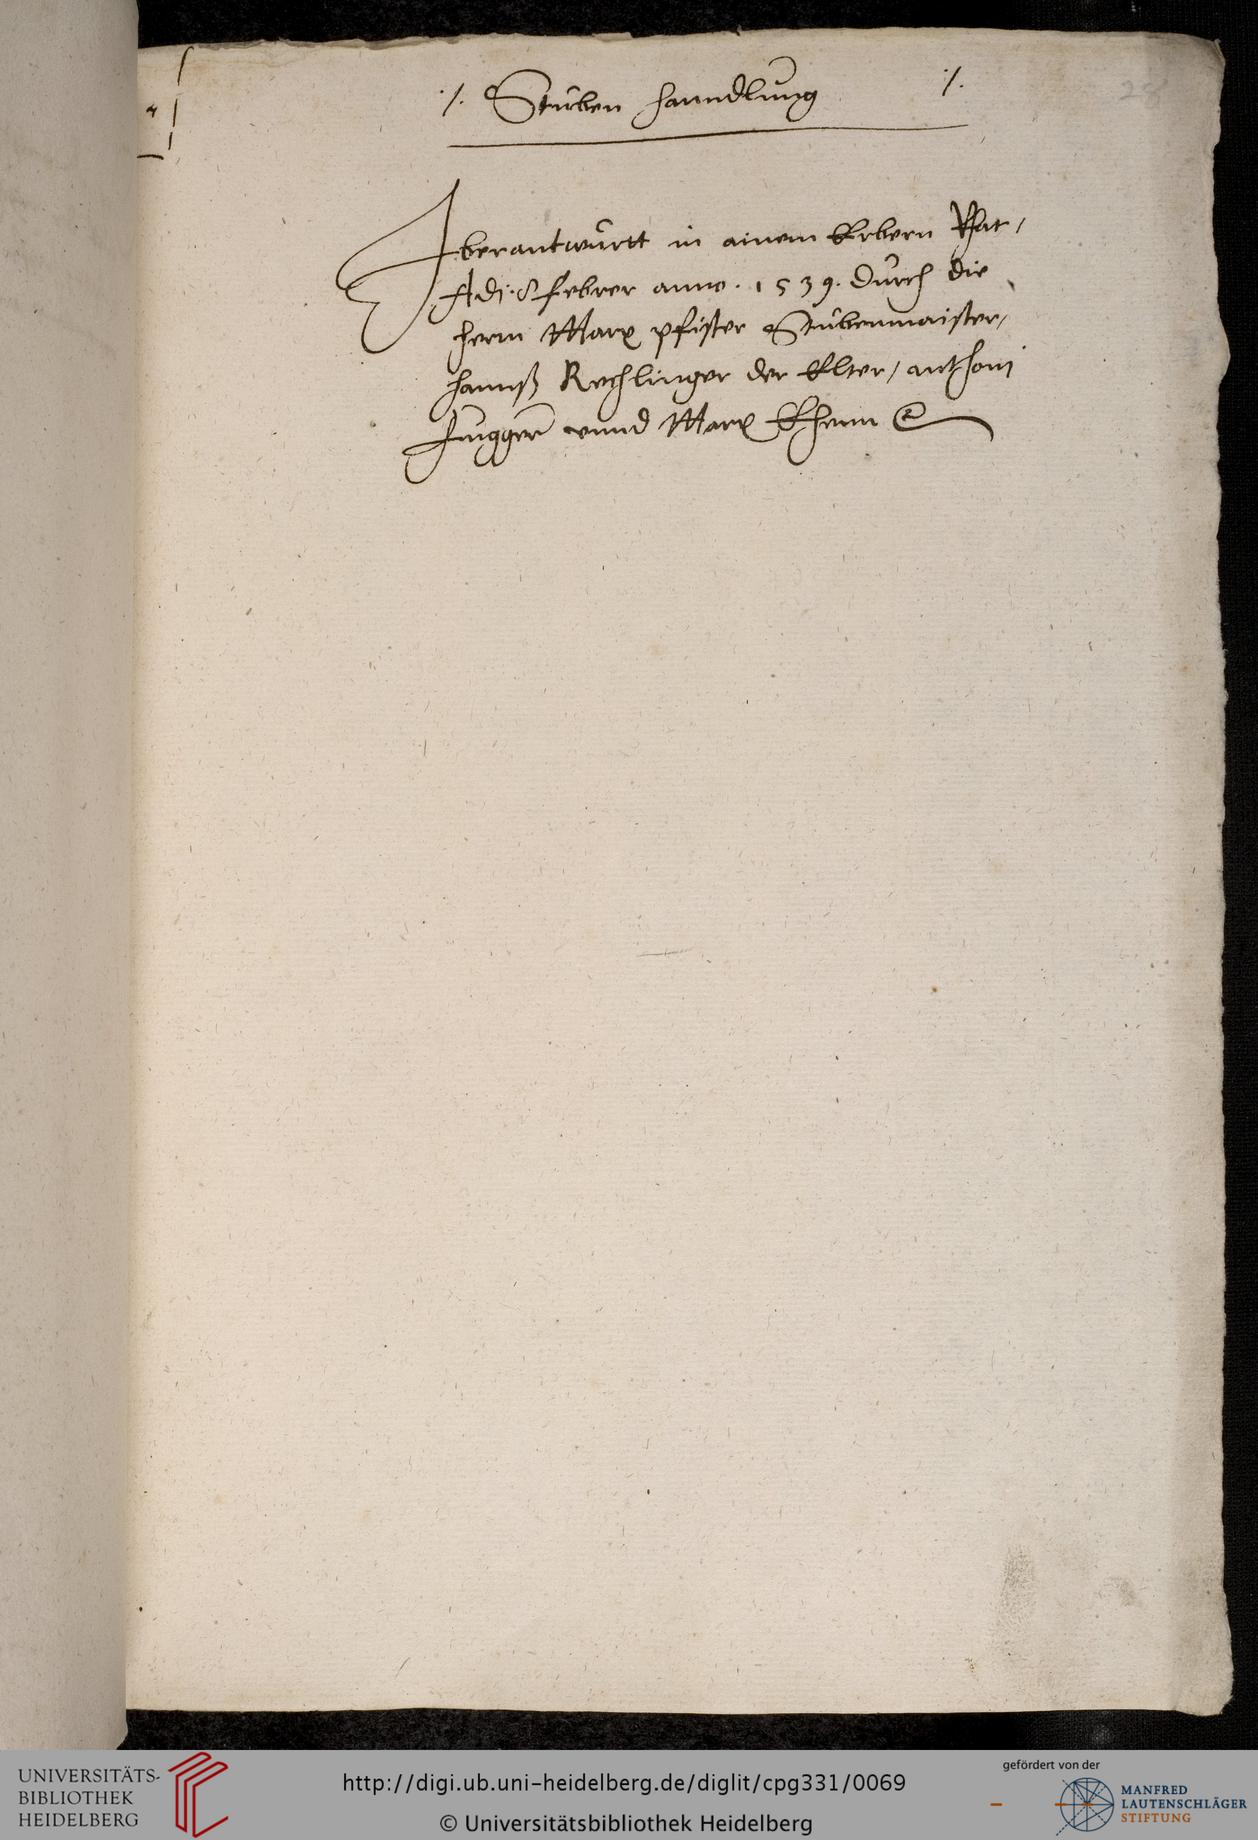 ·/. Stuben hanndlung ·/.
28
Iberantwurtt in ainem Erbern Rhat /
Adj. 8 febrer anno . 1539 . durch die
herrn Marx pfister Stubenmaister /
hannß Rechlinger der Elter / anthonj
fugger vnnd Marx Ehem
UNIVERSITÄTS-
BIBLIOTHEK
HEIDELBERG
http://digi.ub.uni-heidelberg.de/diglit/cpg331/0069
© Universitätsbibliothek Heidelberg
gefördert von der
MANFRED
LAUTENSCHLÄGER
STIFTUNG